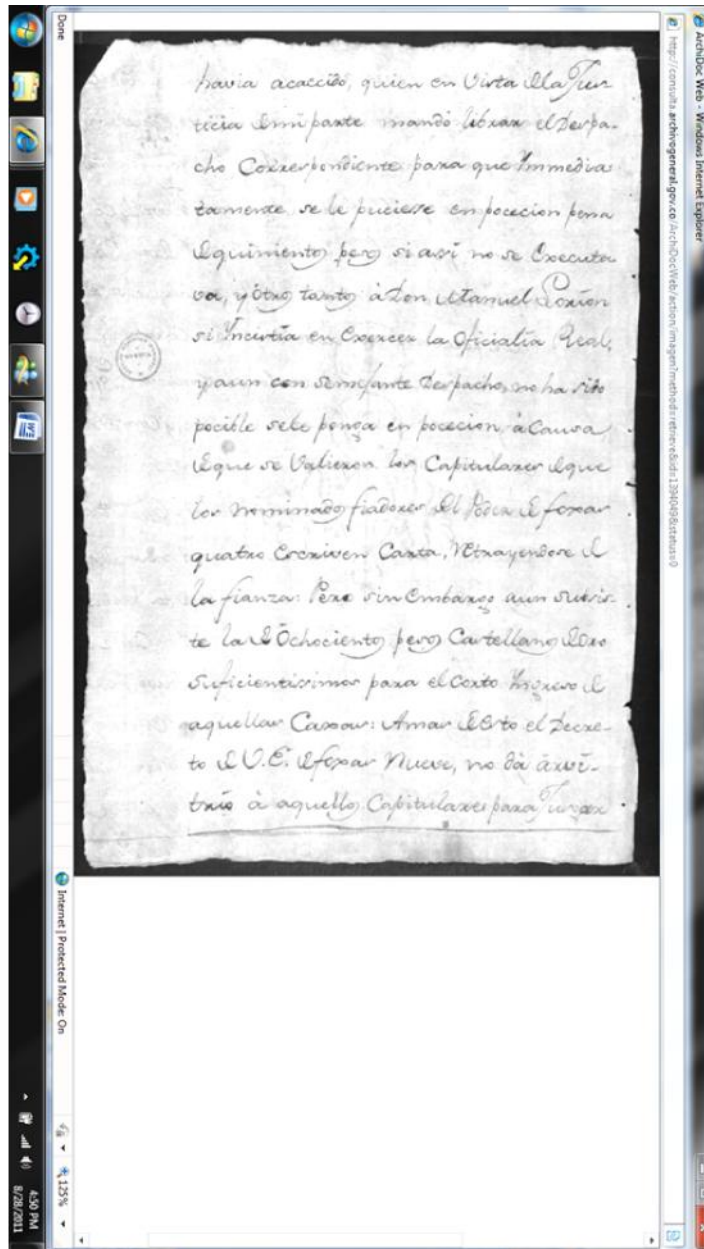 ArchiDoc Web - Windows Internet Explorer
http://consulta.archivogeneral.gov.co/ArchiDocWeb/action/imagen?method=retrieve&id=1394049&status=0
havia acaecido, quien en Vista dela Jus-
ticia demi parte mandó librar el Despa-
cho Correspondiente para que Immedia
tamente se le puciesse en pocecion pena
dequinientos pesos si assi no se Executa
va, y otros tantos à Don Manuel Porxion
si Incistia en Exercer la Oficialia Real,
y aun con Semejante despacho, no ha sido
pocible sele ponga en pocecion, à Causa
deque se Valieron los Capitulares deque
los nominados fiadores del Poder de foxas
quatro Escriven Carta, Retrayendose de
la fianza: Pero sin Embargo aun Susis-
te la de Ochocientos pesos Castellanos de oro
Suficientissimos para el Corto Ingreso de
aquellas Caxas: Amas de Esto el Decre-
to de V.E. de foxas Nueve, no dà arvi-
trio à aquellos Capitulares para Jusgar
Done
Internet | Protected Mode: On
125%
4:50 PM
8/28/2011